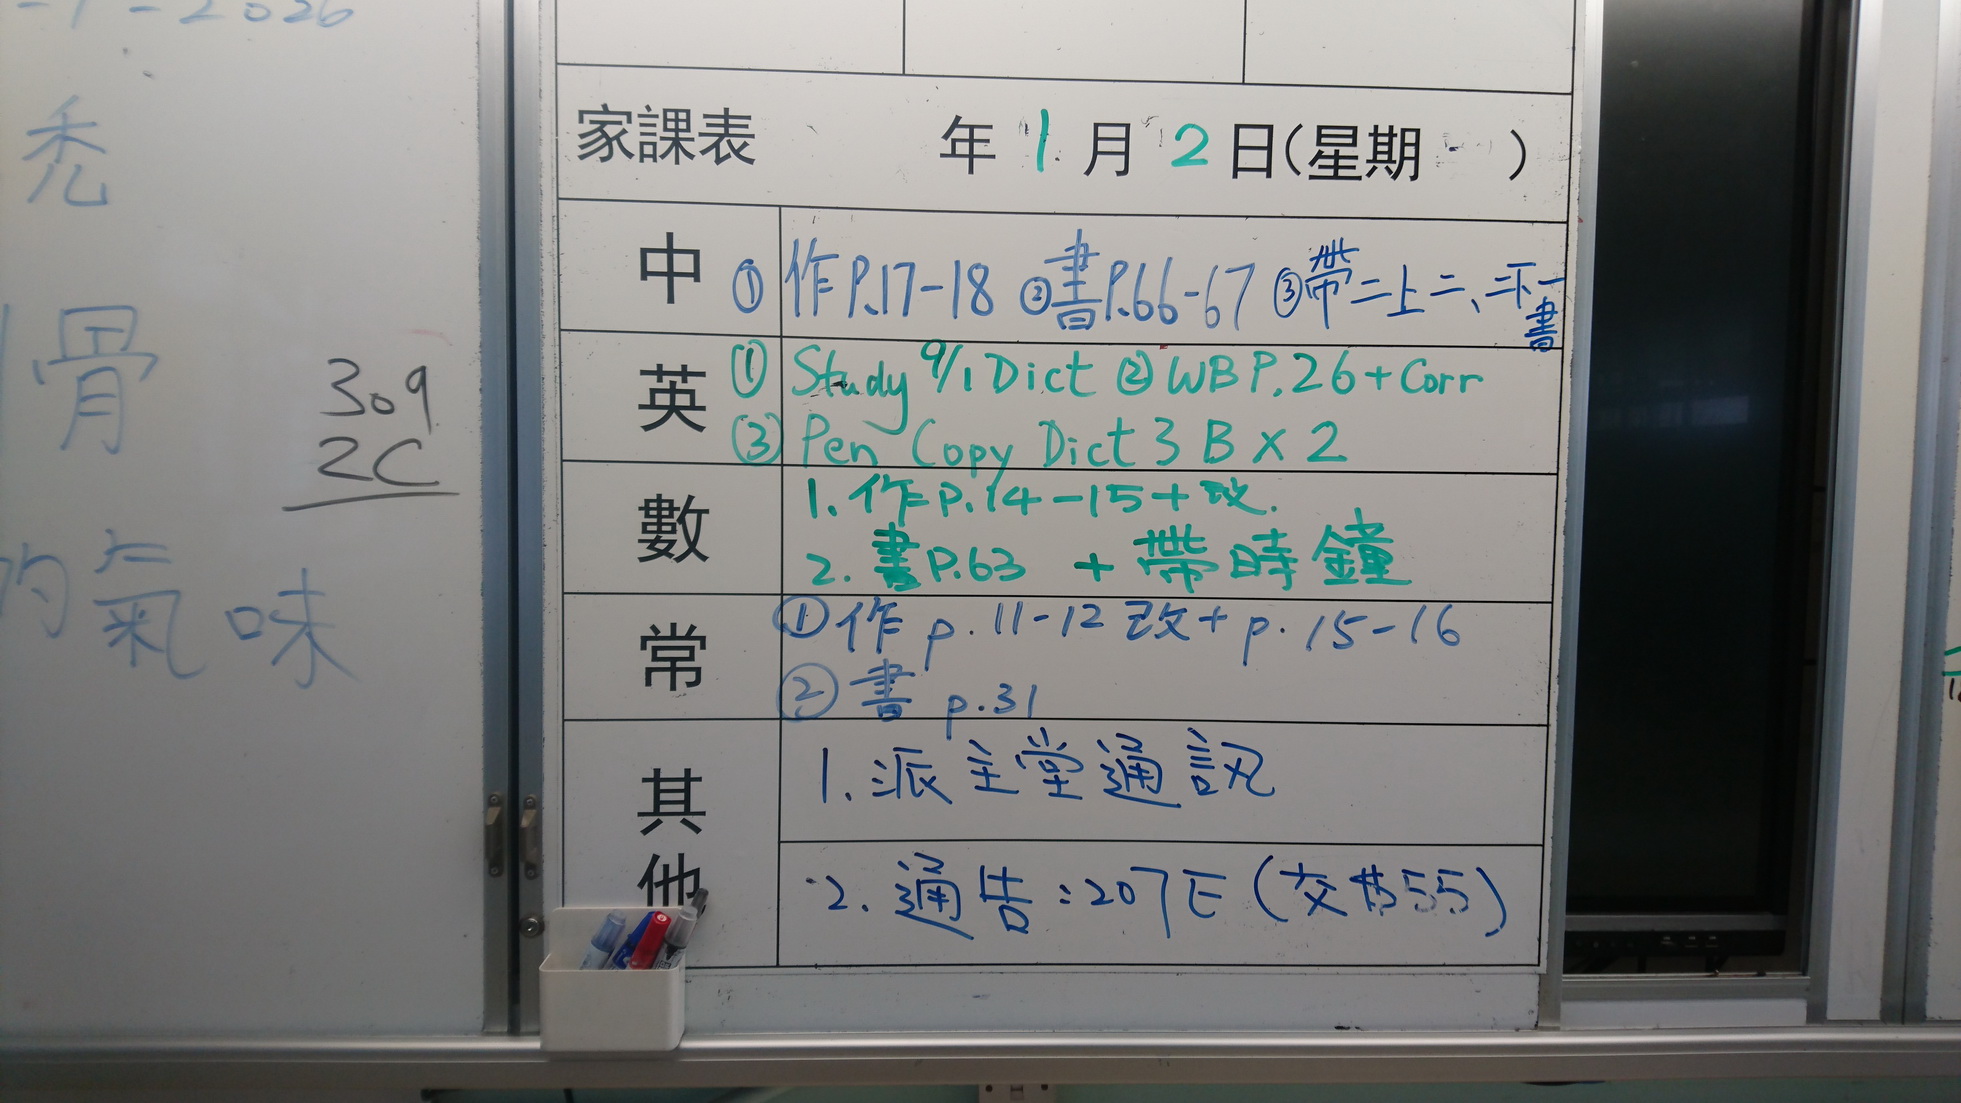 -1-2026
禿
骨
的氣味
309
2C
家課表 年1月2日(星期 )
中 ①作P.17-18 ②書P.66-67 ③帶二上二、二下一書
英 ① Study 9/1 Dict ② WB P.26 + Corr
③ Pen Copy Dict 3 B x 2
數 1. 作P.14-15+改.
2. 書P.63 + 帶時鐘
常 ①作 p.11-12 改+ p.15-16
② 書 p.31
其他 1. 派主堂通訊
2. 通告:207E (交$55)